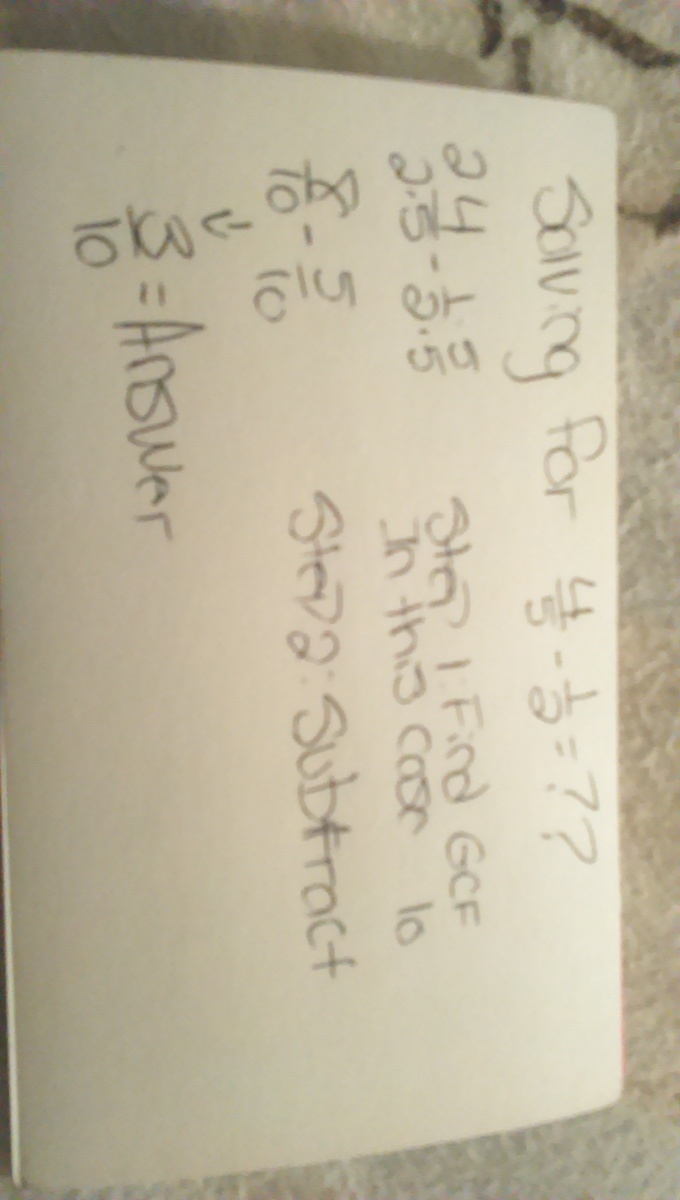 Solving for 4/5 - 1/2 = ??
2/2 · 4/5 - 1/2 · 5/5
Step 1: Find GCF
In this case 10
8/10 - 5/10
Step 2: Subtract
↓
3/10 = Answer